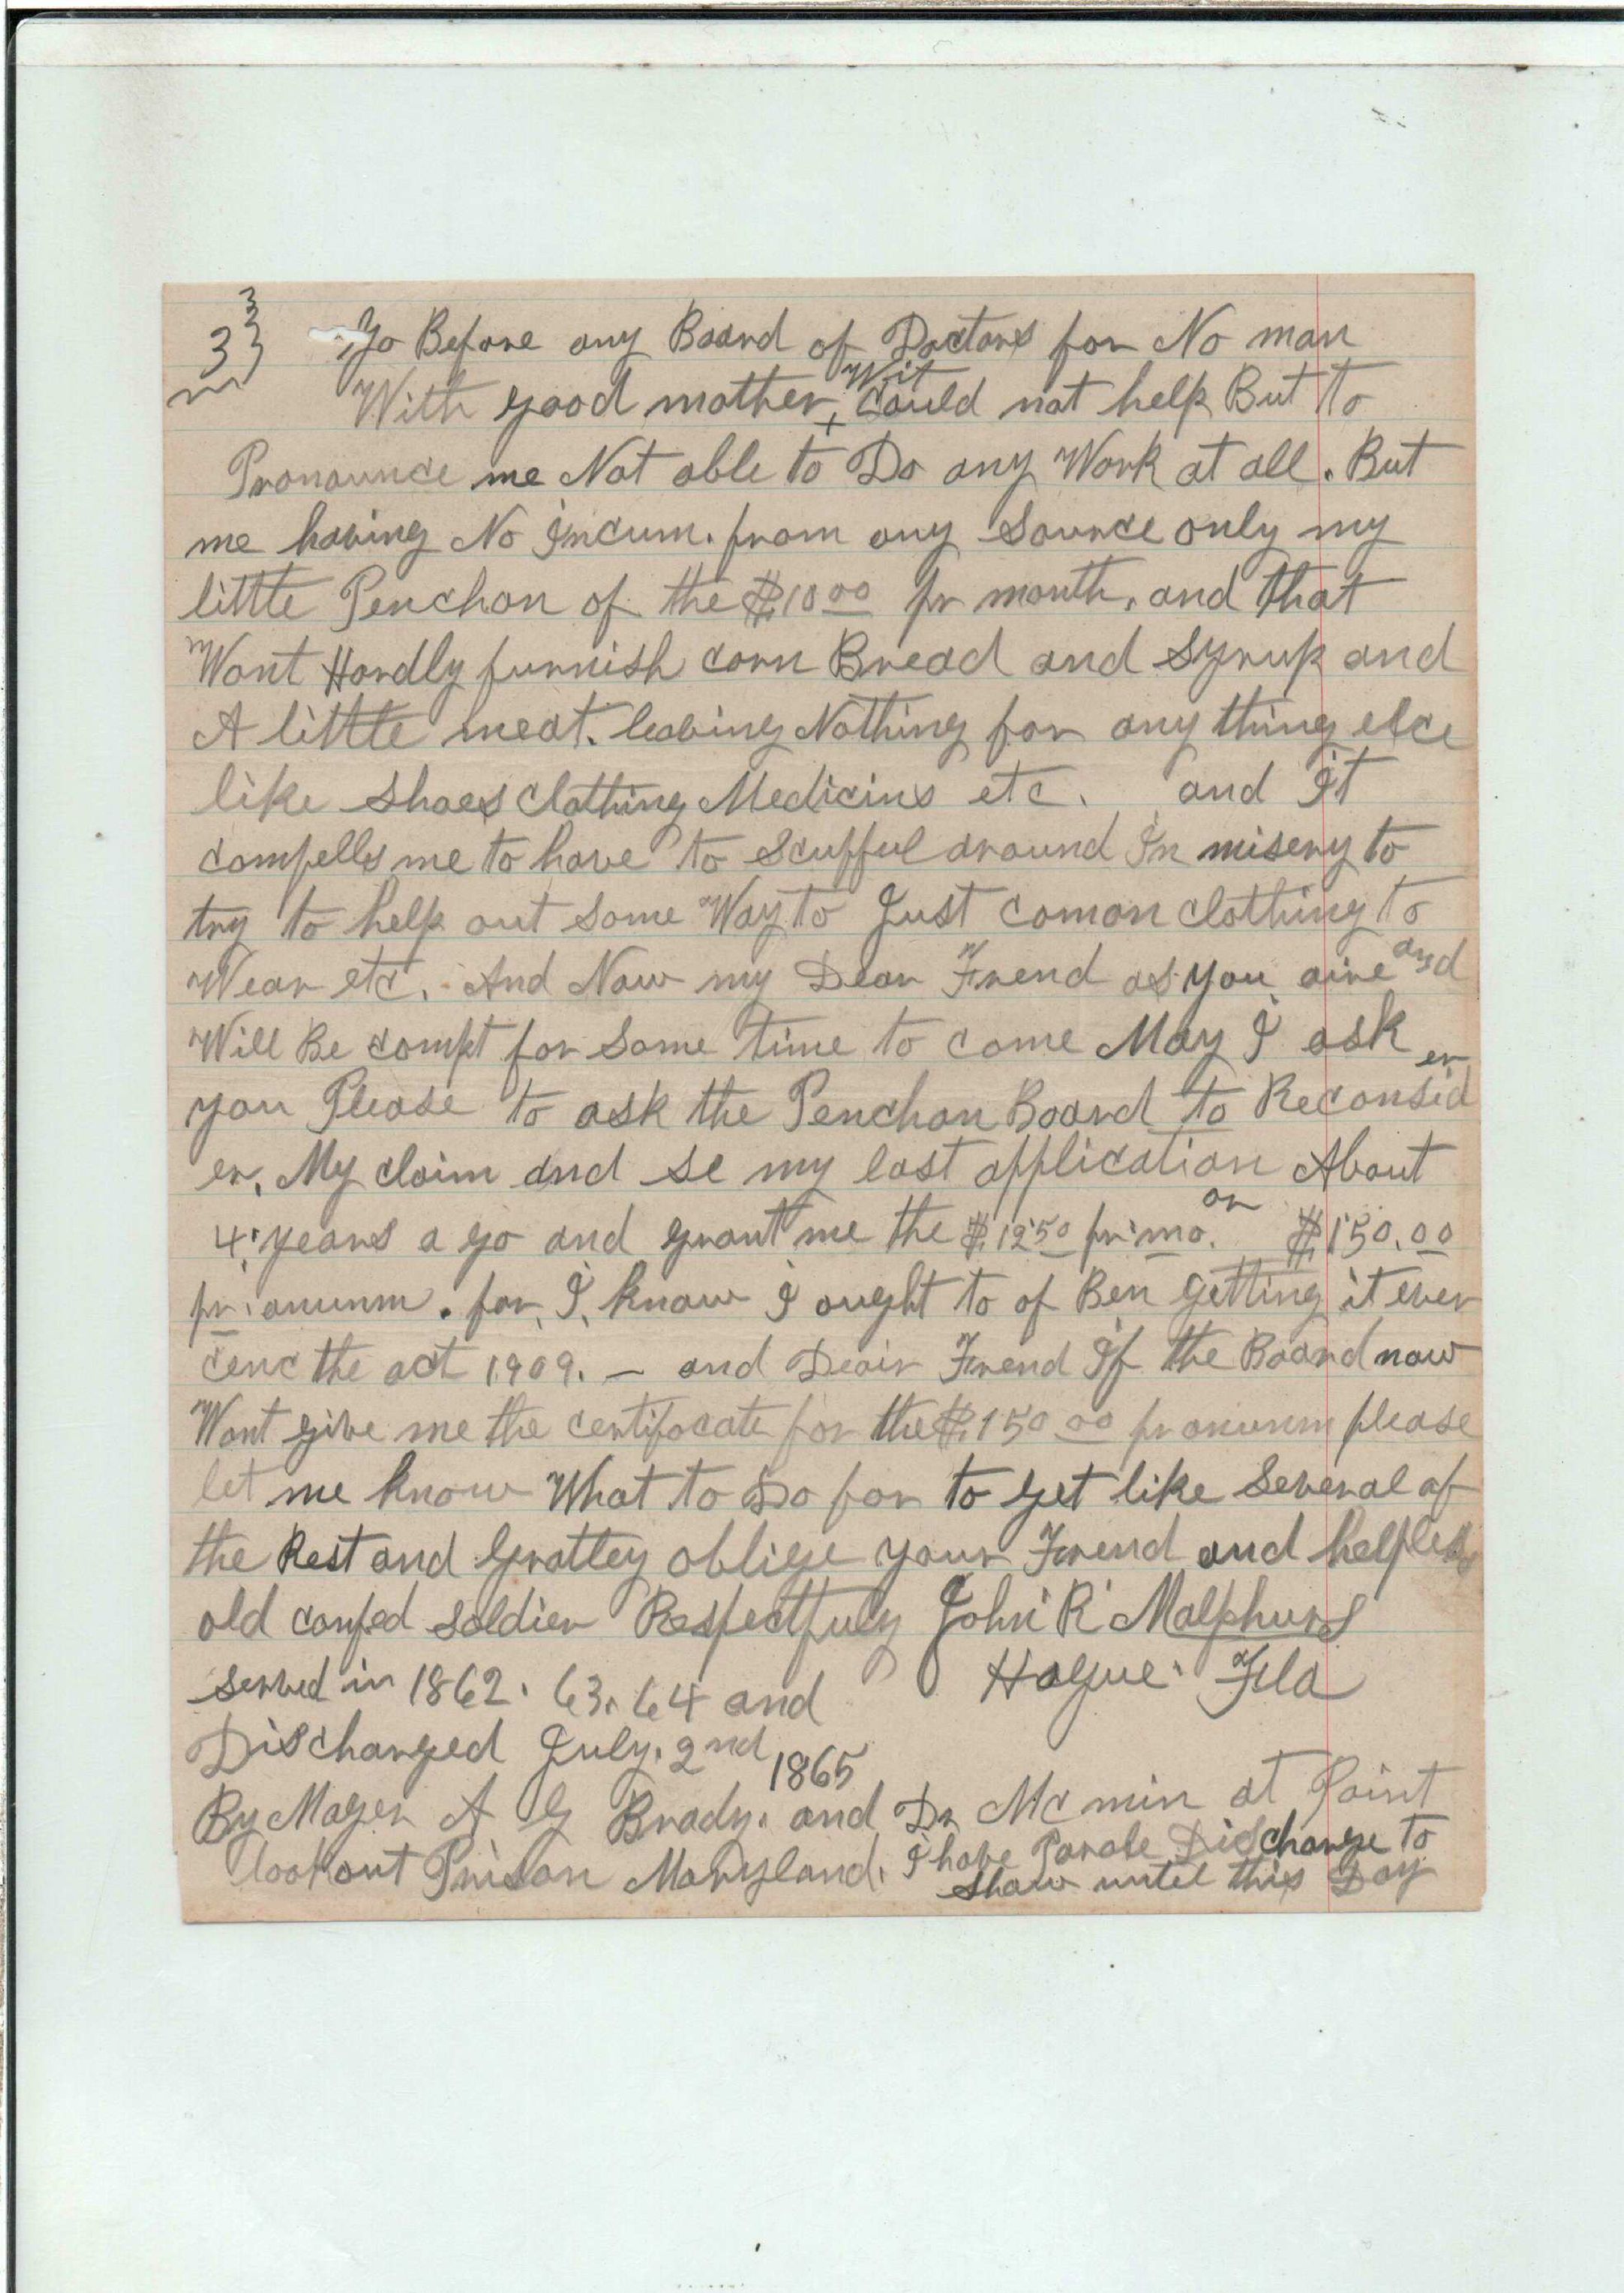 3
Go Before any Board of Doctors for No man
With good mother, Wit could not help But to
Pronounce me Not able to Do any Work at all. But
me having No Incum. from any Source only my
little Penchon of the $10 00 pr month, and that
Wont Hardly furnish corn Bread and Syrup and
A little meat. leaving Nothing for any thing elce
like Shoes clothing Medicins etc. and It
compells me to have to Scufful around In misery to
try to help out Some Way to Just comon clothing to
Wear etc. And Now my Dear Frend as you aire and
Will Be compt for Some time to come May I ask
you Please to ask the Penchon Board to Reconsid er
er. My claim and se my last application About
4 years a go and grant me the $12 50 pr mo. or $150.00
pr anunm. for, I, know I ought to of Ben getting it ever
cenc the act 1909. — and Deair Frend If the Board now
Wont give me the certifocate for the $150 00 pr anunm please
let me know What to Do for to get like Several of
the Rest and Grattey obliege your Frend and helpless
old confed Soldier Respectfuly John R Malphurs
Served in 1862. 63. 64 and Hague. Fla
Discharged July. 2nd 1865
By Mager A G Brady. and Dr Mc min at Point
lookout Prison Maryland. I have Parole Discharge to
Show until this Day